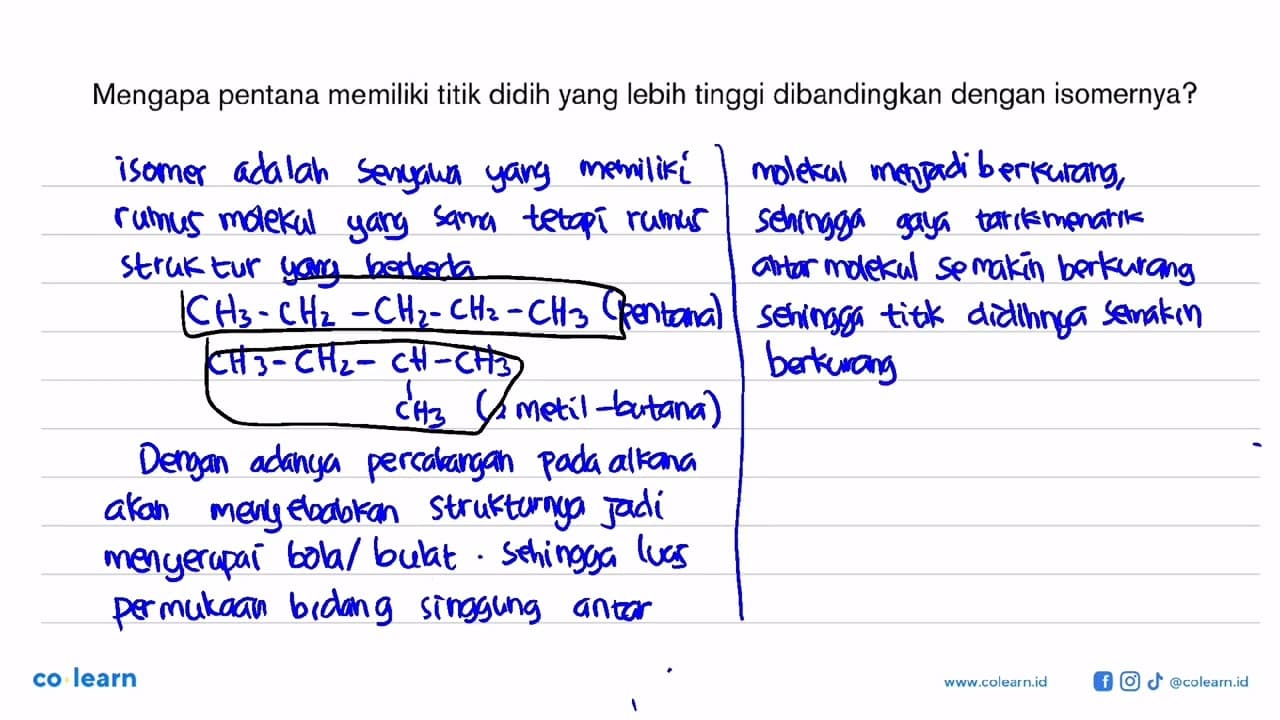 Mengapa pentana memiliki titik didih yang lebih tinggi dibandingkan dengan isomernya?
isomer adalah senyawa yang memiliki
rumus molekul yang sama tetapi rumus
struktur yang berbeda
CH3-CH2-CH2-CH2-CH3 (pentana)
CH3-CH2-CH-CH3
CH3 (2 metil-butana)
Dengan adanya percabangan pada alkana
akan menyebabkan strukturnya jadi
menyerupai bola/bulat. sehingga luas
permukaan bidang singgung antar
molekul menjadi berkurang,
sehingga gaya tarik menarik
antar molekul semakin berkurang
sehingga titik didihnya semakin
berkurang
co learn
www.colearn.id
@colearn.id